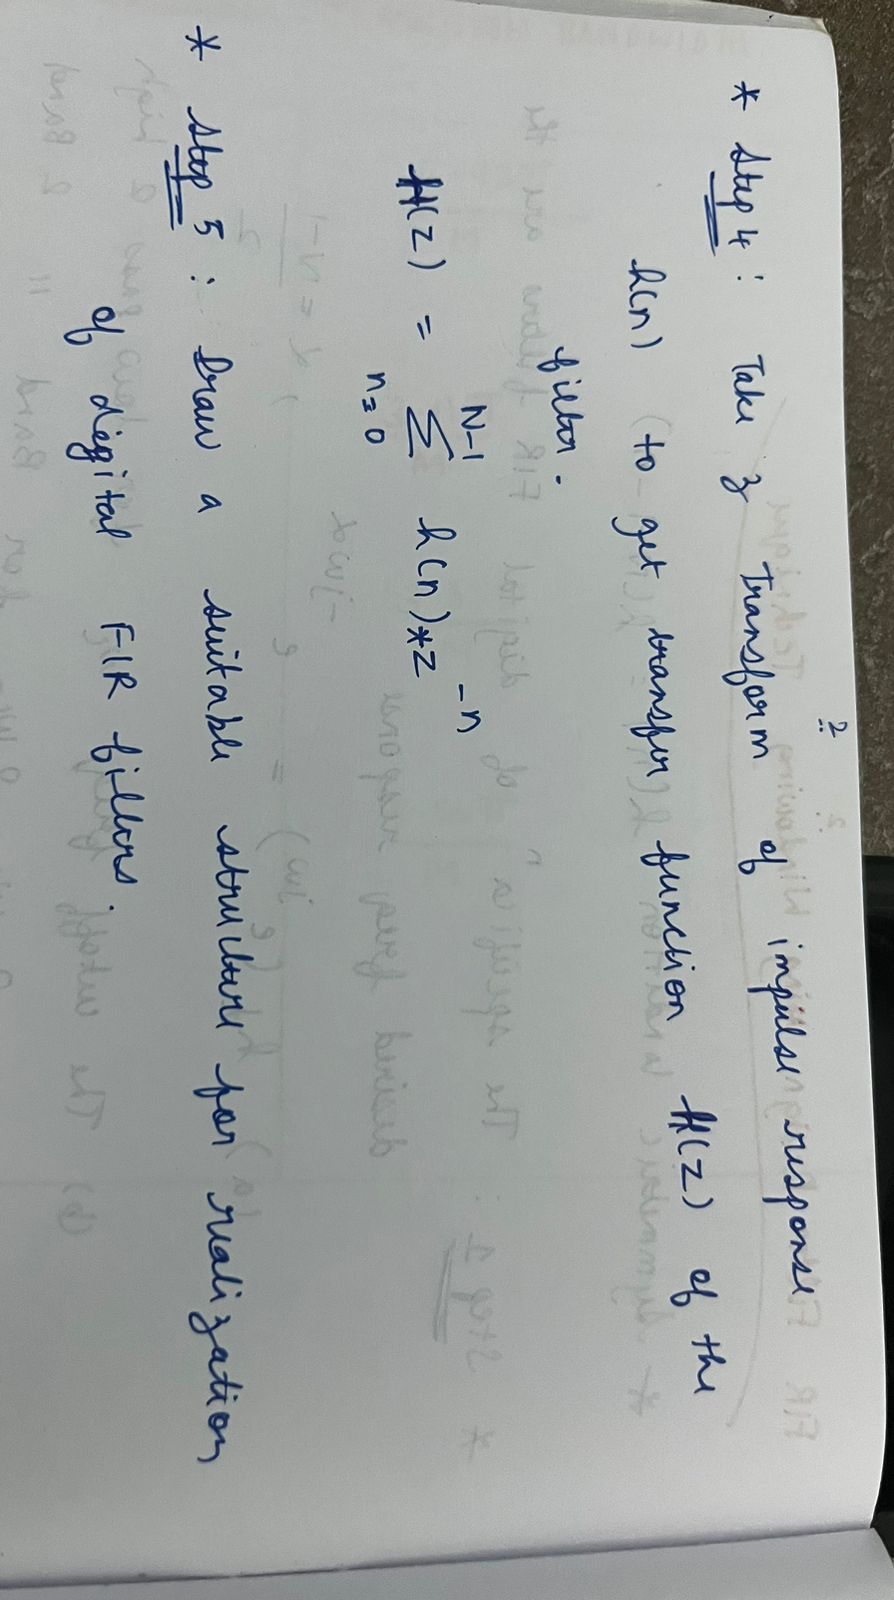 2
* Step 4 : Take z Transform of impulse response
h(n) to get transfer function H(z) of the
filter.
N-1
H(z) = Σ h(n)*z^-n
n=0
* Step 5 : Draw a suitable structure for realization
of digital FIR filters.